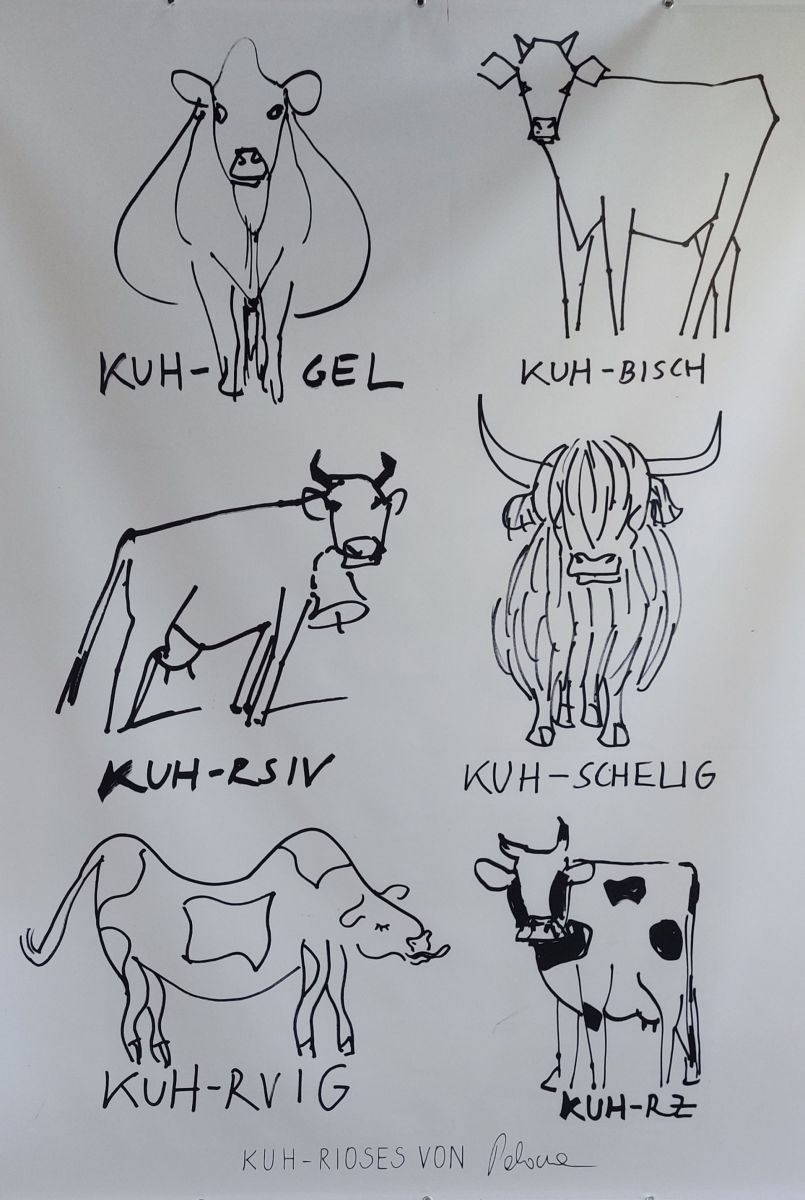 KUH- GEL
KUH-BISCH
KUH-RSIV
KUH-SCHELIG
KUH-RVIG
KUH-RZ
KUH-RIOSES VON